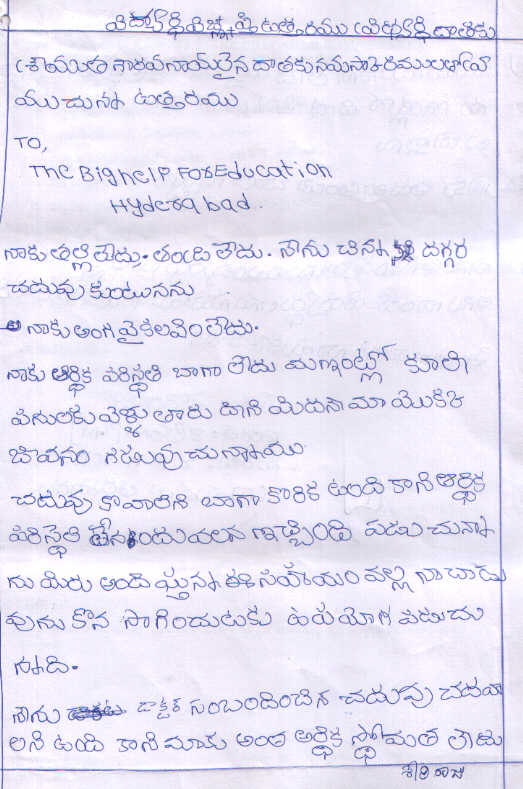 విద్యార్థి విజ్ఞప్తి ఉత్తరము (విద్యార్థి దాతకు
(శ్రీయుత గౌరవనీయులైన దాతకు నమస్కారములతో వ్రా
యుచున్న ఉత్తరము
TO,
The Bighelp. For Education
Hyderabad.
నాకు తల్లి లేదు. తండ్రి లేదు. నేను చిన్న దగ్గర
చదువుకుంటునను
నాకు అంగవైకలవిం లేదు.
నాకు ఆర్థిక పరిస్థతి బాగా లేదు మాఇంట్లో కూలి
పనులకు వెళ్తు తారు దాని మిదనే మా యొకకి
జివనం గడుపుచున్నాము
చదువు కోవాలని బాగా కొరిక ఉంది కాని ఆర్థిక
పరిస్థతి లేనందువలన ఇబ్బింది పడుచున్నా
ను మిరు అంది స్తున్న ఈ సహాయం వల్ల నా చాదు
వును కొన సాగించుటకు ఉపయోగ పడుచు
న్నాది.
నేను డాక్టర్ సంబందించిన చదువు చదవా
లని ఉంది కాని మాకు అంత ఆర్థిక స్తోమత లేదు